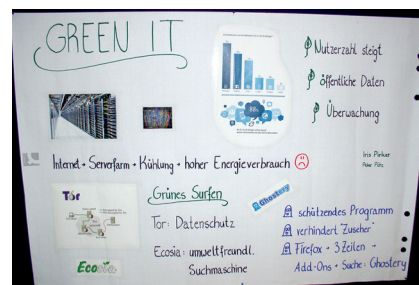 GREEN IT
Nutzerzahl steigt
öffentliche Daten
Überwachung
Internet → Serverfarm → Kühlung → hoher Energieverbrauch
Tor
Grünes Surfen
Ghostery
Tor: Datenschutz
Ecosia: umweltfreundl.
Suchmaschine
Ecosia
schützendes Programm
verhindert "Zuseher"
Firefox → 3 Zeilen →
Add-Ons → Suche: Ghostery